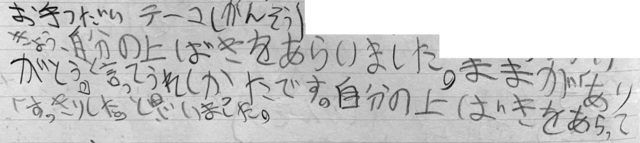 お手つだい テーコ(がんそう)
きょう、自分の上ばきをあらいました。ままがあり
がとう。と言ってうれしかたです。自分の上ばきをあらって
すっきりした。と思いました。